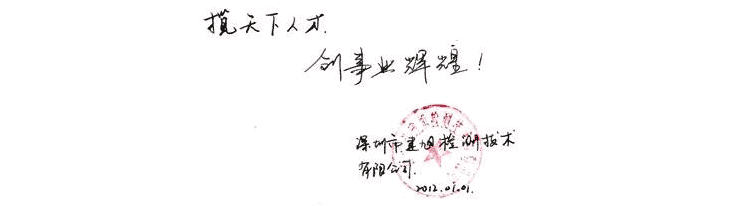 揽天下人才.
创事业辉煌！
深圳市建旭检测技术
有限公司.
2012.01.01.